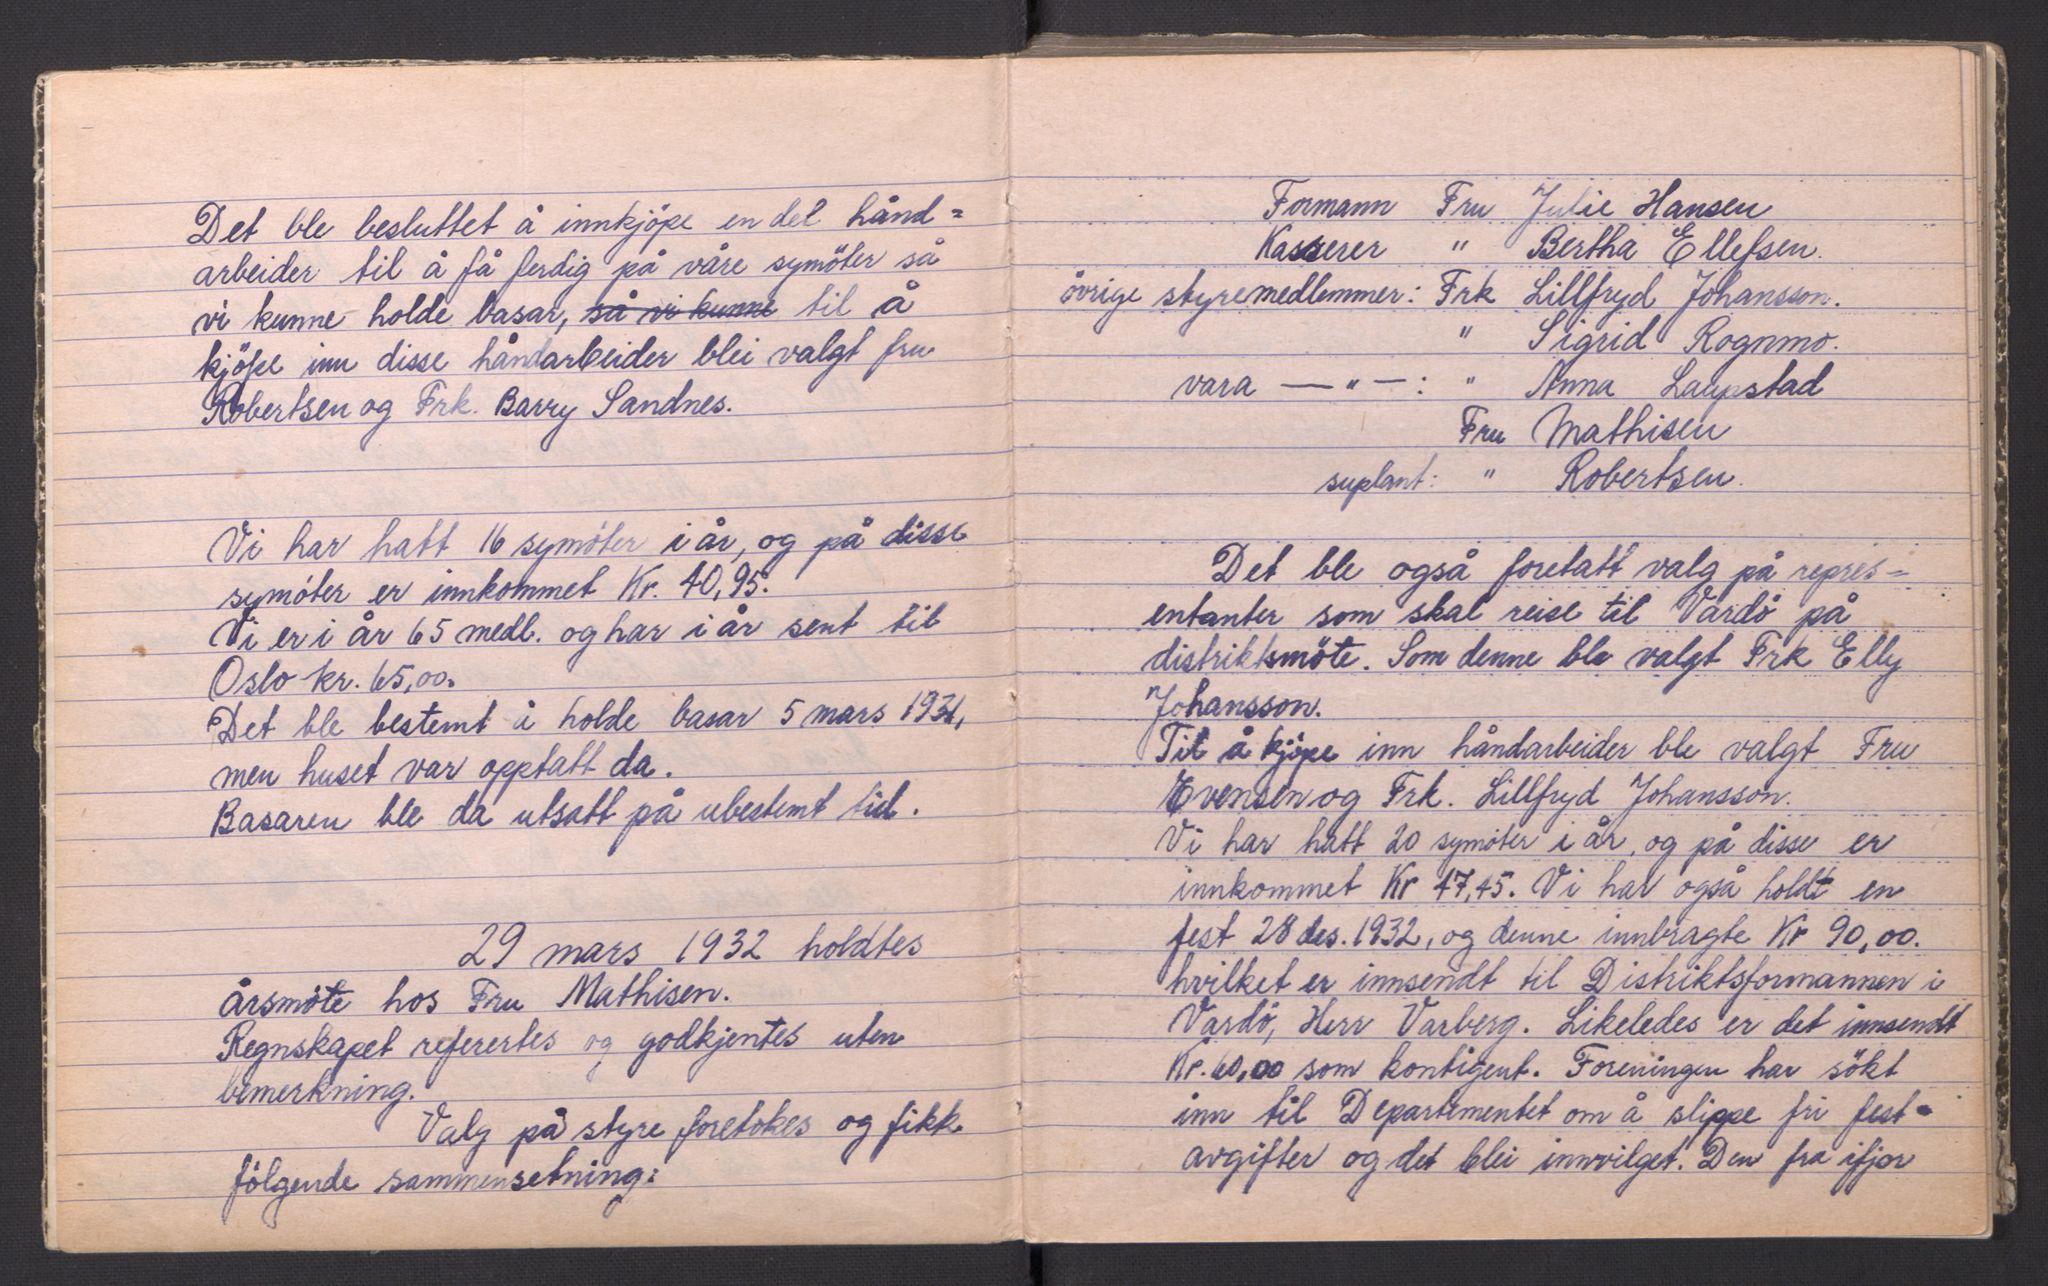 Det ble besluttet å innkjöpe en del hånd=
arbeider til å få ferdig på våre symöter så
vi kunne holde basar, så vi kunne til å
kjöpe inn disse håndarbeider blei valgt fru
Robertsen og Frk. Barry Sandnes.
Vi har hatt 16 symöter i år, og på disse
symöter er innkommet Kr. 40,95.
Vi er i år 65 medl. og har i år sent til
Oslo kr. 65,00.
Det ble bestemt å holde basar 5 mars 1931,
men huset var opptatt da.
Basaren ble da utsatt på ubestemt tid.
29 mars 1932 holdtes
årsmöte hos Fru Mathisen.
Regnskapet refererтes og godkjentes uten
bemerkning.
Valg på styre foretokes og fikk
fölgende sammensetning:
Formann Fru Julie Hansen
Kasserer " Bertha Ellefsen.
övrige styremedlemmer: Frk Lillfryd Johansson.
" Sigrid Rognmo.
vara — " — : " Anna Laupstad
Fru Mathisen
suplant: " Robertsen.
Det ble også foretatt valg på repres=
entanter som skal reise til Vardö på
distriktsmöte. Som denne ble valgt Frk Elly
Johansson.
Til å kjöpe inn håndarbeider ble valgt Fru
Evensen og Frk. Lillfryd Johansson.
Vi har hatt 20 symöter i år, og på disse er
innkommet Kr 47,45. Vi har også holdt en
fest 28 des. 1932, og denne innbragte Kr 90,00.
hvilket er innsendt til Distriktsformannen i
Vardö, Herr Varberg. Likeledes er det innsendt
Kr. 60,00 som kontigent. Foreningen har sökt
inn til Departementet om å slippe fri fest=
avgifter og det blei innvilget. Den fra ifjor